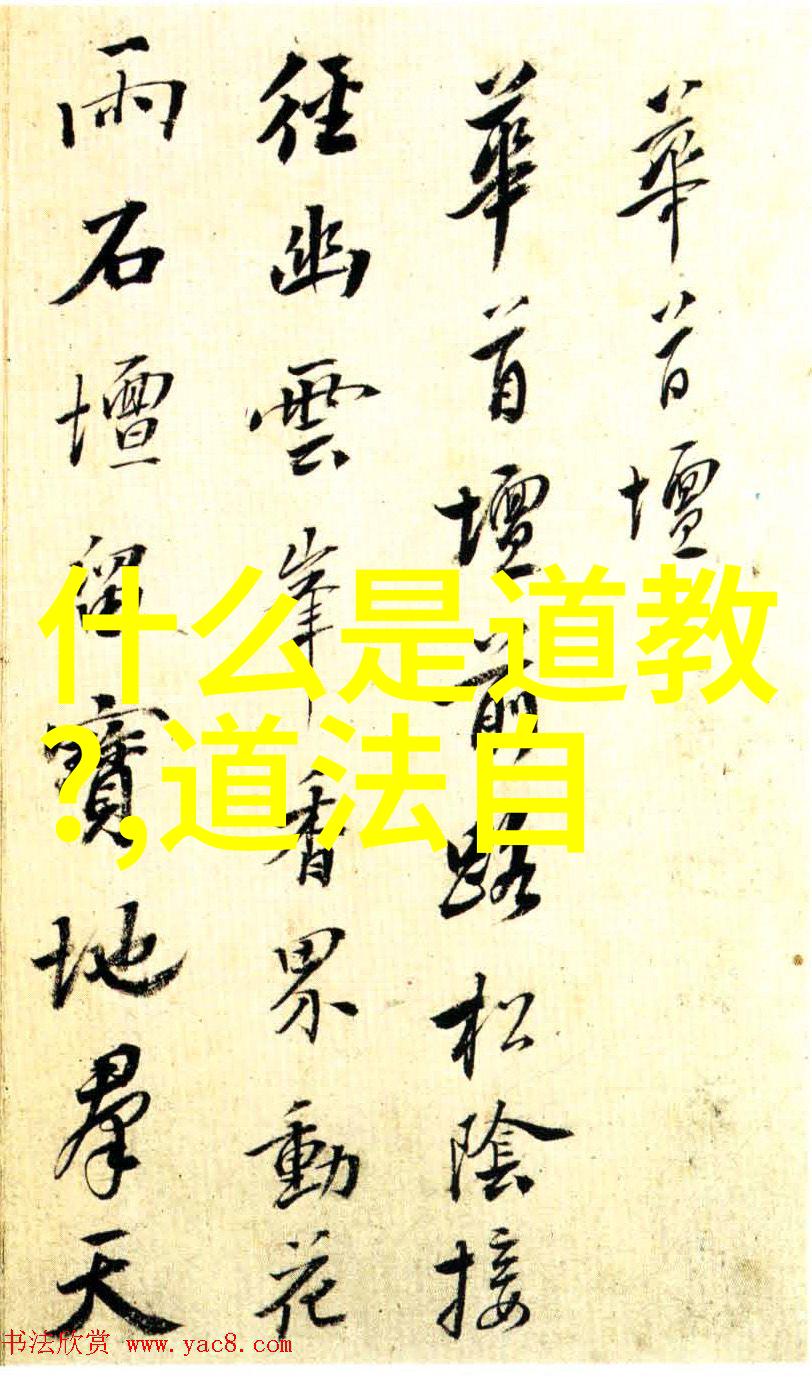 華首壇
華首壇前路松陰接
徑幽雲峯香界動花
雨石壇留寶地羣天
什么是道教
?,道法自
书法欣赏 www.yac8.com